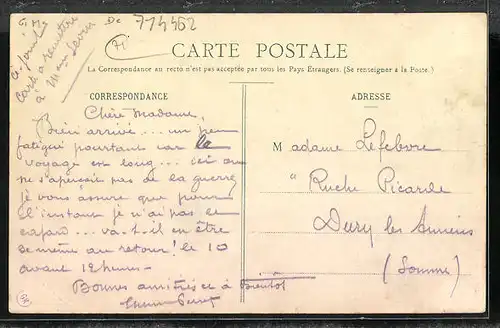 G. M.
De 774462
ci-jointe
Carte à remettre
à Mme
CARTE POSTALE
La Correspondance au recto n'est pas acceptée par tous les Pays Étrangers. (Se renseigner à la Poste.)
CORRESPONDANCE
Chère Madame,
Bien arrivé... un peu
fatigué pourtant car le
voyage est long... ici on
ne s'aperçoit pas de la guerre
je vous assure que pour
l'instant je n'ai pas le
cafard... va-t-il en être
de même au retour! le 10
avant 12 heures-
Bonnes amitiés et à Bientôt
ADRESSE
Madame Lefebvre
"Ruche Picarde
Dury les Amiens
(Somme)